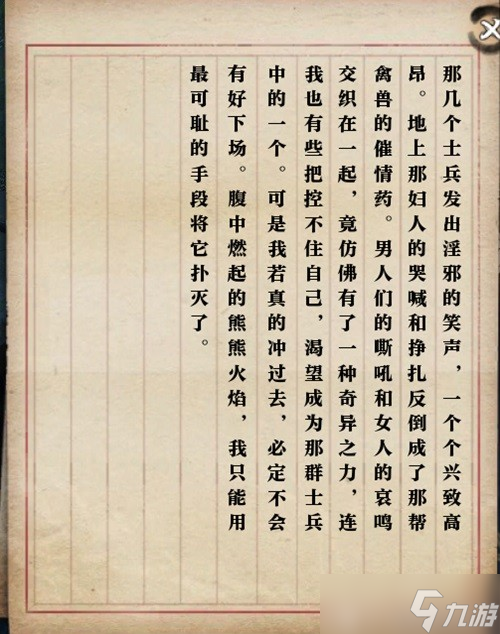 那几个士兵发出淫邪的笑声，一个个兴致高
昂。地上那妇人的哭喊和挣扎反倒成了那帮
禽兽的催情药。男人们的嘶吼和女人的哀鸣
交织在一起，竟仿佛有了一种奇异之力，连
我也有些把控不住自己，渴望成为那群士兵
中的一个。可是我若真的冲过去，必定不会
有好下场。腹中燃起的熊熊火焰，我只能用
最可耻的手段将它扑灭了。
九游